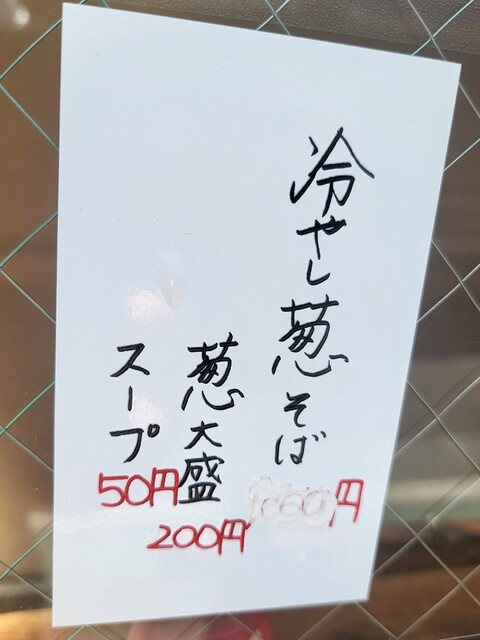 冷やし葱そば
円
葱大盛
200円
スープ
50円